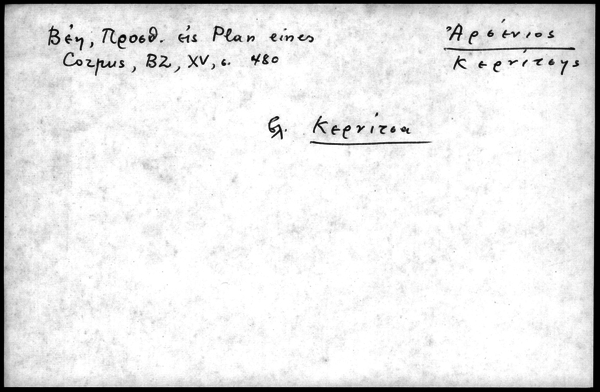 Βέη, Προσθ. εἰς Plan eines
Corpus, BZ, XV, σ. 480
Ἀρσένιος
Κερνίτσης
βλ. Κερνίτσα